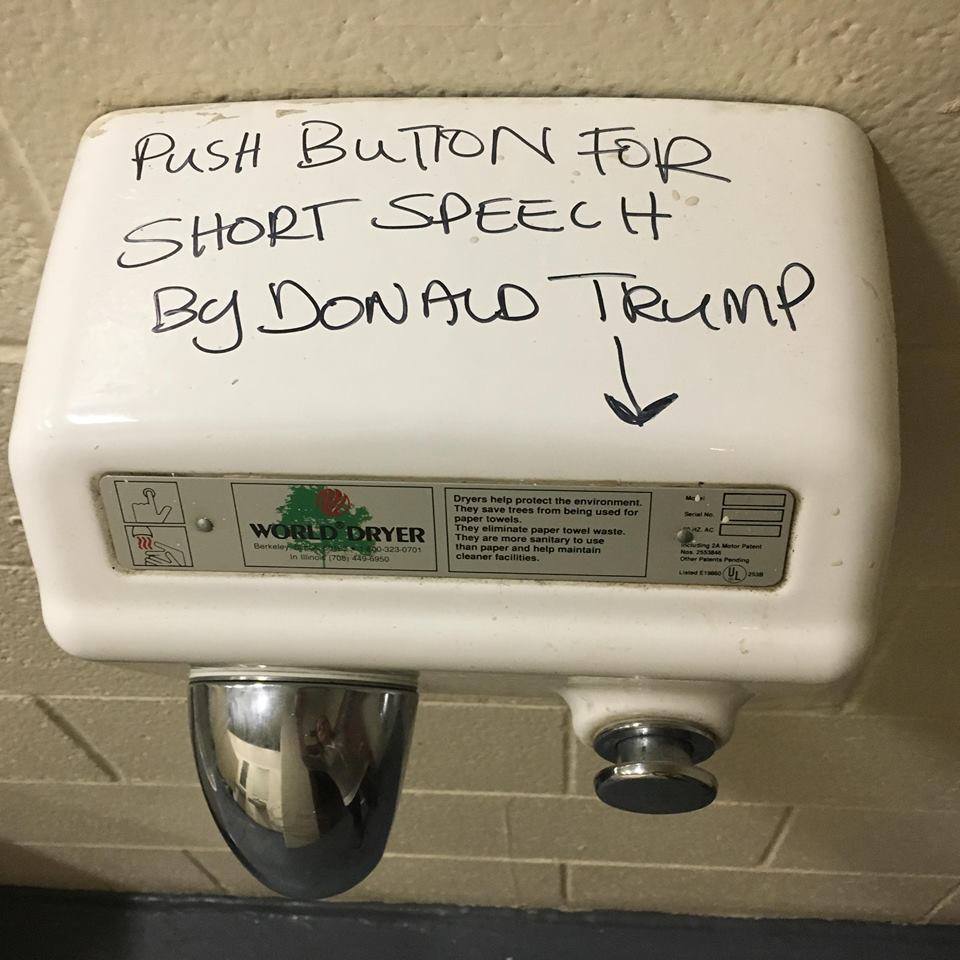 PUSH BUTTON FOR
SHORT SPEECH
By DONALD TRUMP
WORLD® DRYER
Berkeley
In Illinois (708) 449-6950
Dryers help protect the environment.
They save trees from being used for
paper towels.
They eliminate paper towel waste.
They are more sanitary to use
than paper and help maintain
cleaner facilities.
Serial No.
HZ. AC
Including 2A Motor Patent
Nos. 2553846
Other Patents Pending
Listed E19860 UL 253B